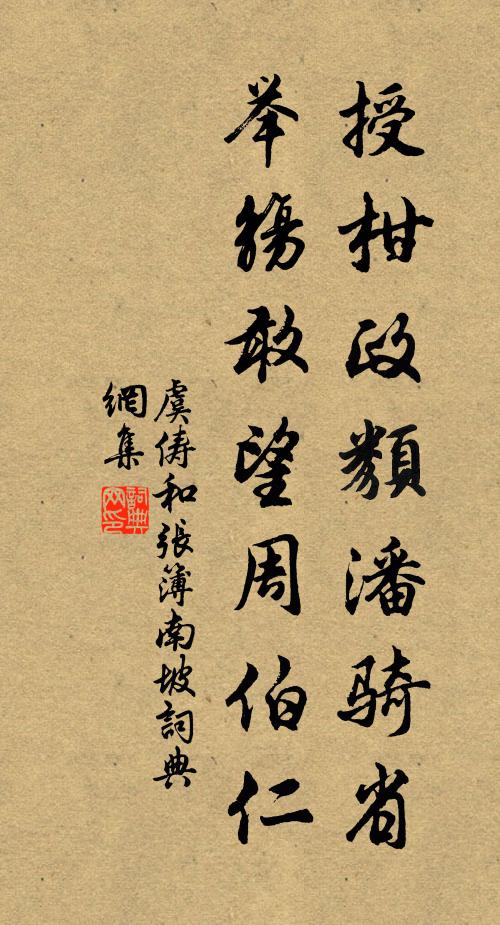 授柑政類潘騎省
举觴敢望周伯仁
虞儔和張簿南坡詞典
網集
詞典網印